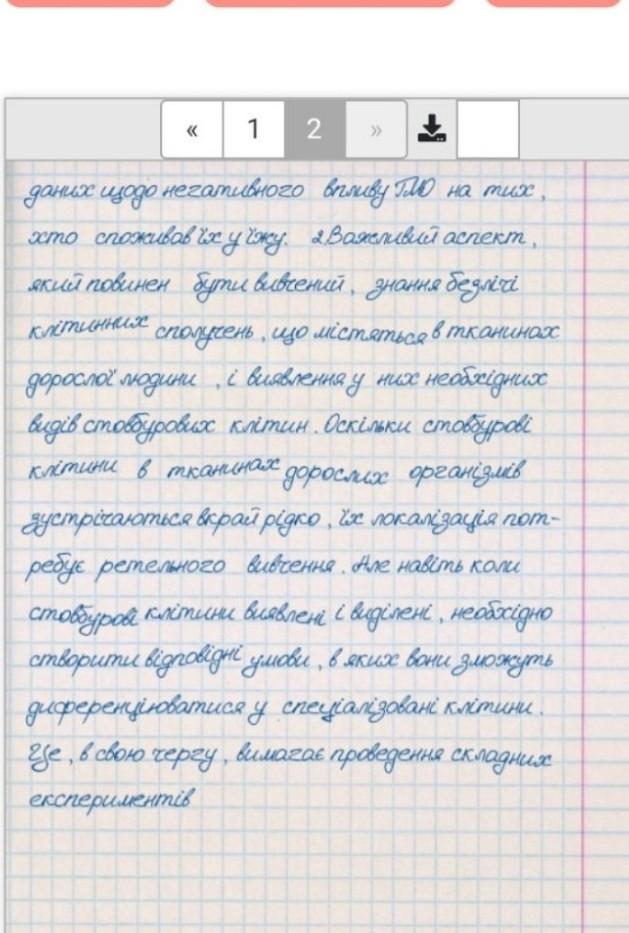 « 1 2 »
даних щодо негативного впливу ГМО на тих,
хто споживав їх у їжу. 2.Важливий аспект,
який повинен бути вивчений, знання безлічі
клітинних сполучень, що містяться в тканинах
дорослої людини, і виявлення у них необхідних
видів стовбурових клітин. Оскільки стовбурові
клітини в тканинах дорослих організмів
зустрічаються вкрай рідко, їх локалізація пот-
ребує ретельного вивчення. Але навіть коли
стовбурові клітини виявлені і виділені, необхідно
створити відповідні умови, в яких вони зможуть
диференціюватися у спеціалізовані клітини.
Це, в свою чергу, вимагає проведення складних
експериментів